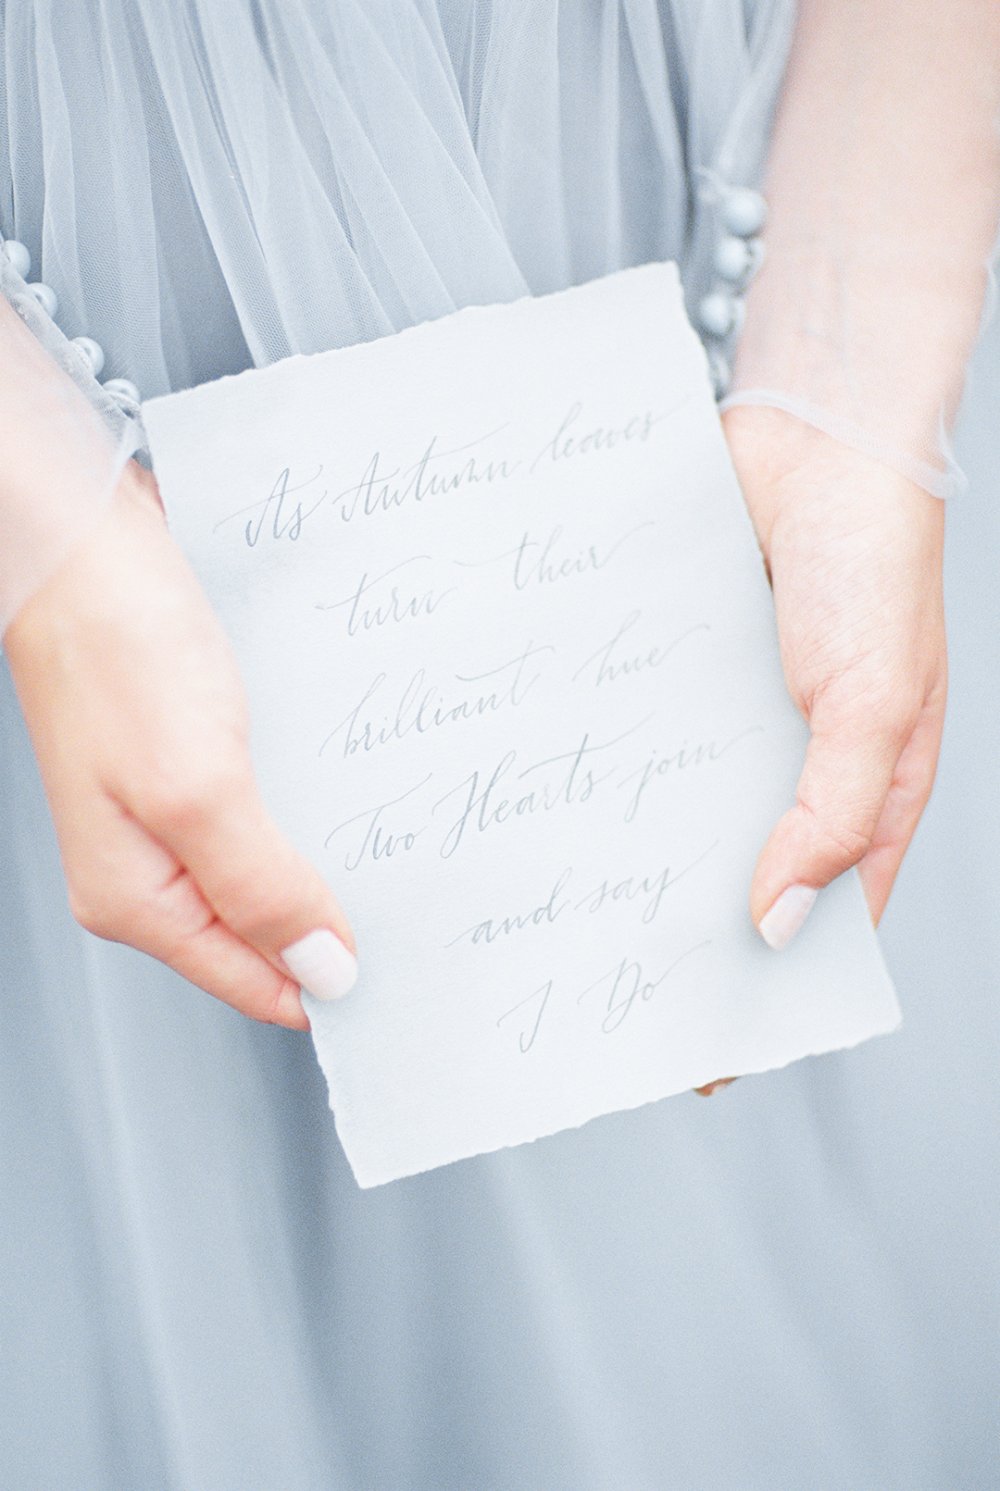 As Autumn leaves
turn their
brilliant hue
Two Hearts join
and say
I Do